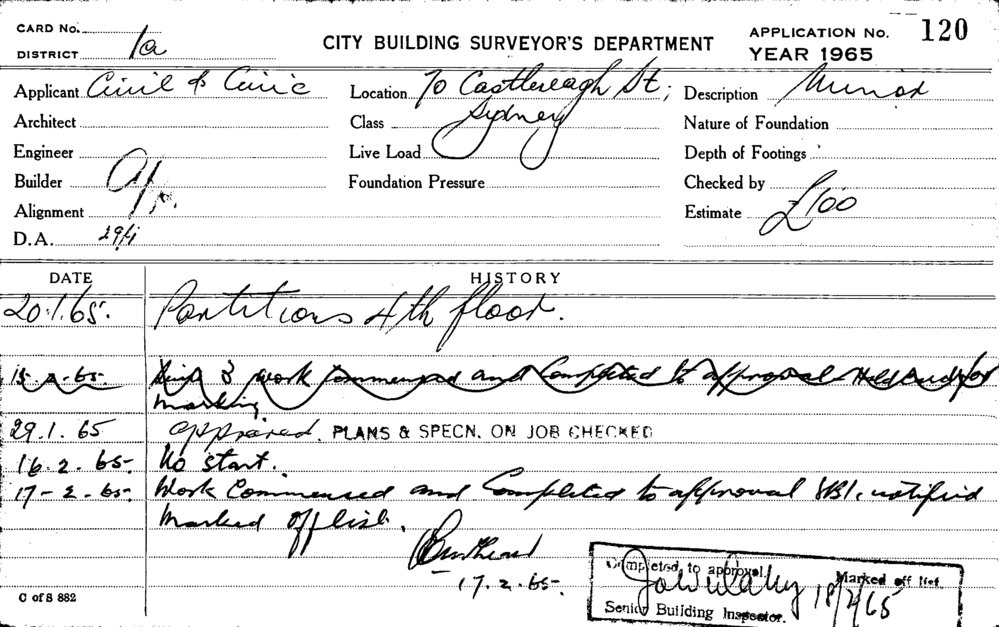 CARD No.
DISTRICT 1a
CITY BUILDING SURVEYOR'S DEPARTMENT
APPLICATION No. 120
YEAR 1965
Applicant Civil & Civic
Location 70 Castlereagh St; Sydney
Description Minor
Architect
Class
Nature of Foundation
Engineer
Live Load
Depth of Footings
Builder
Foundation Pressure
Checked by
Alignment
Estimate £100
D.A. 29/1
DATE HISTORY
20.1.65. Partitions 4th floor.
15-2-65- work commenced and Completed to approval
marking
29.1.65 approved. PLANS & SPECN. ON JOB CHECKED
16.2.65- No start.
17-2-65- Work Commenced and Completed to approval SBI. notified
Marked off list.
17.2.65-
Completed to approval. Marked off list.
18/2/65
Senior Building Inspector.
C of S 882